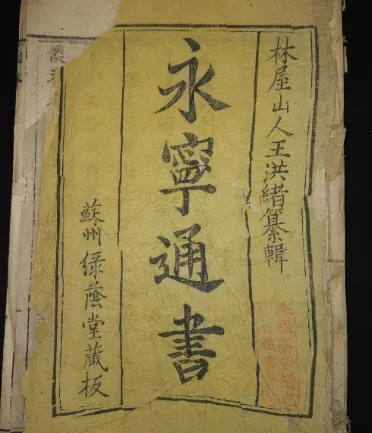 林屋山人王洪緒纂輯
永寧通書
蘇州綠蔭堂藏板